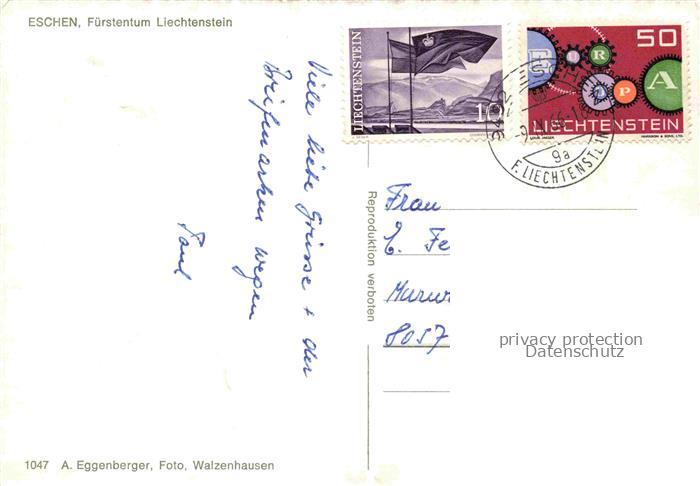 ESCHEN, Fürstentum Liechtenstein
Viele liebe Grüsse + der
Briefmarken wegen
Paul
1047 A. Eggenberger, Foto, Walzenhausen
Reproduktion verboten
LIECHTENSTEIN
10
50
E R
P A
LIECHTENSTEIN
HARRISON & SONS, LTD.
9a
F. LIECHTENSTEIN
Frau
E. Fe
8057
privacy protection
Datenschutz